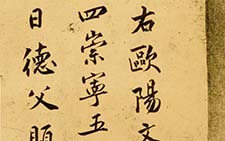 右歐陽文
四崇寧五
日德父題